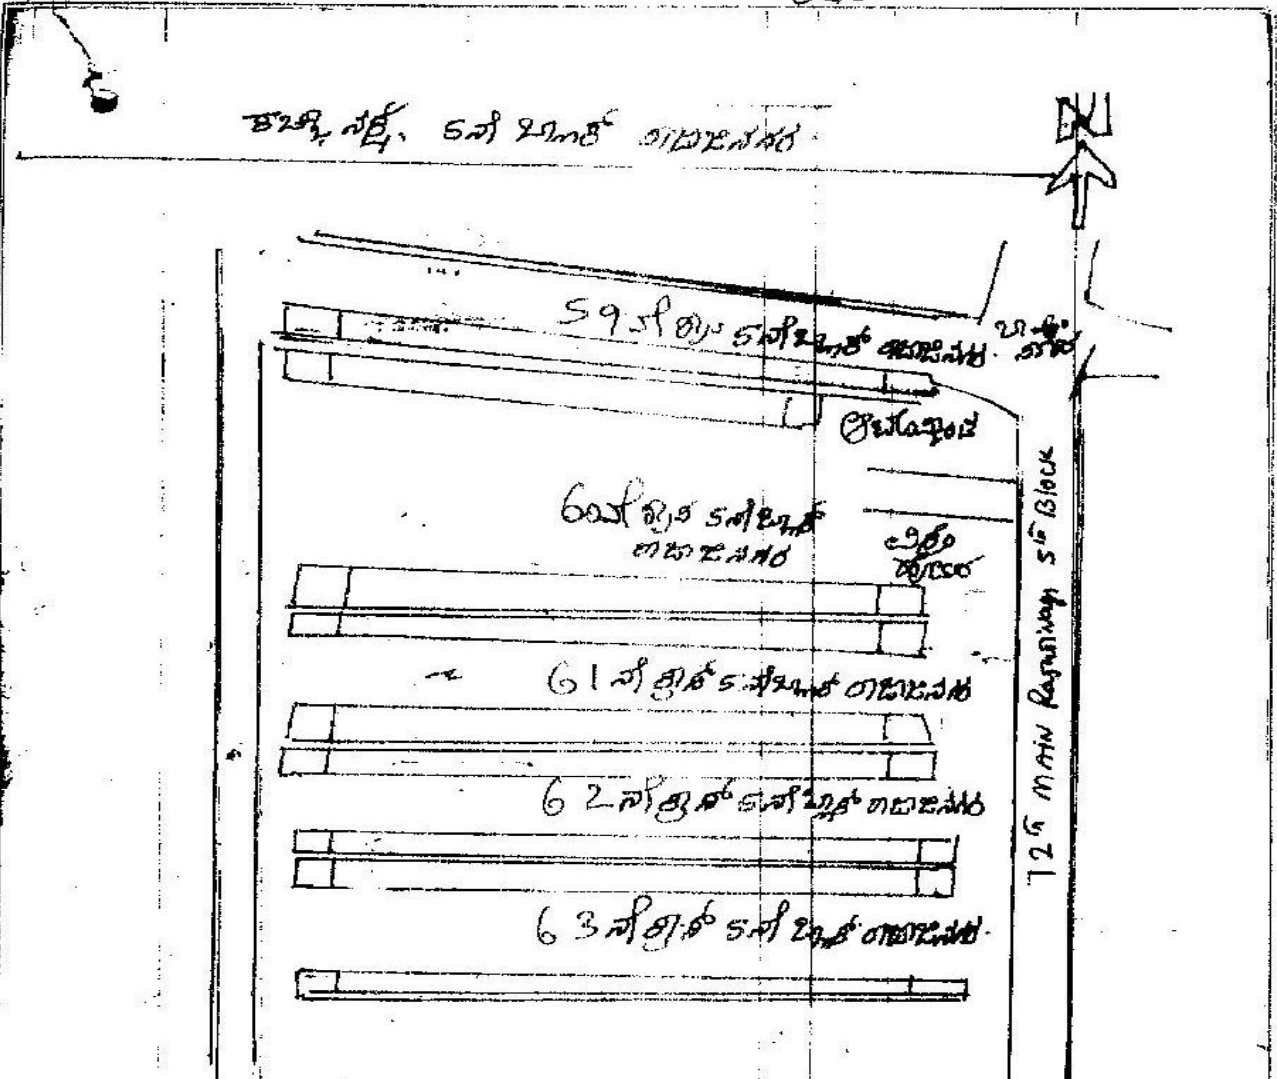 ಕಚ್ಚಿ ನಕ್ಷೆ. 5ನೇ ಬ್ಲಾಕ್ ರಾಜಾಜಿನಗರ.
N
59ನೇ ಕ್ರಾಸ್ 5ನೇ ಬ್ಲಾಕ್ ರಾಜಾಜಿನಗರ.
60ನೇ ಕ್ರಾಸ್ 5ನೇ ಬ್ಲಾಕ್
ರಾಜಾಜಿನಗರ
61ನೇ ಕ್ರಾಸ್ 5ನೇ ಬ್ಲಾಕ್ ರಾಜಾಜಿನಗರ
62ನೇ ಕ್ರಾಸ್ 5ನೇ ಬ್ಲಾಕ್ ರಾಜಾಜಿನಗರ
63ನೇ ಕ್ರಾಸ್ 5ನೇ ಬ್ಲಾಕ್ ರಾಜಾಜಿನಗರ.
72nd MAIN Rajajinagar 5th Block